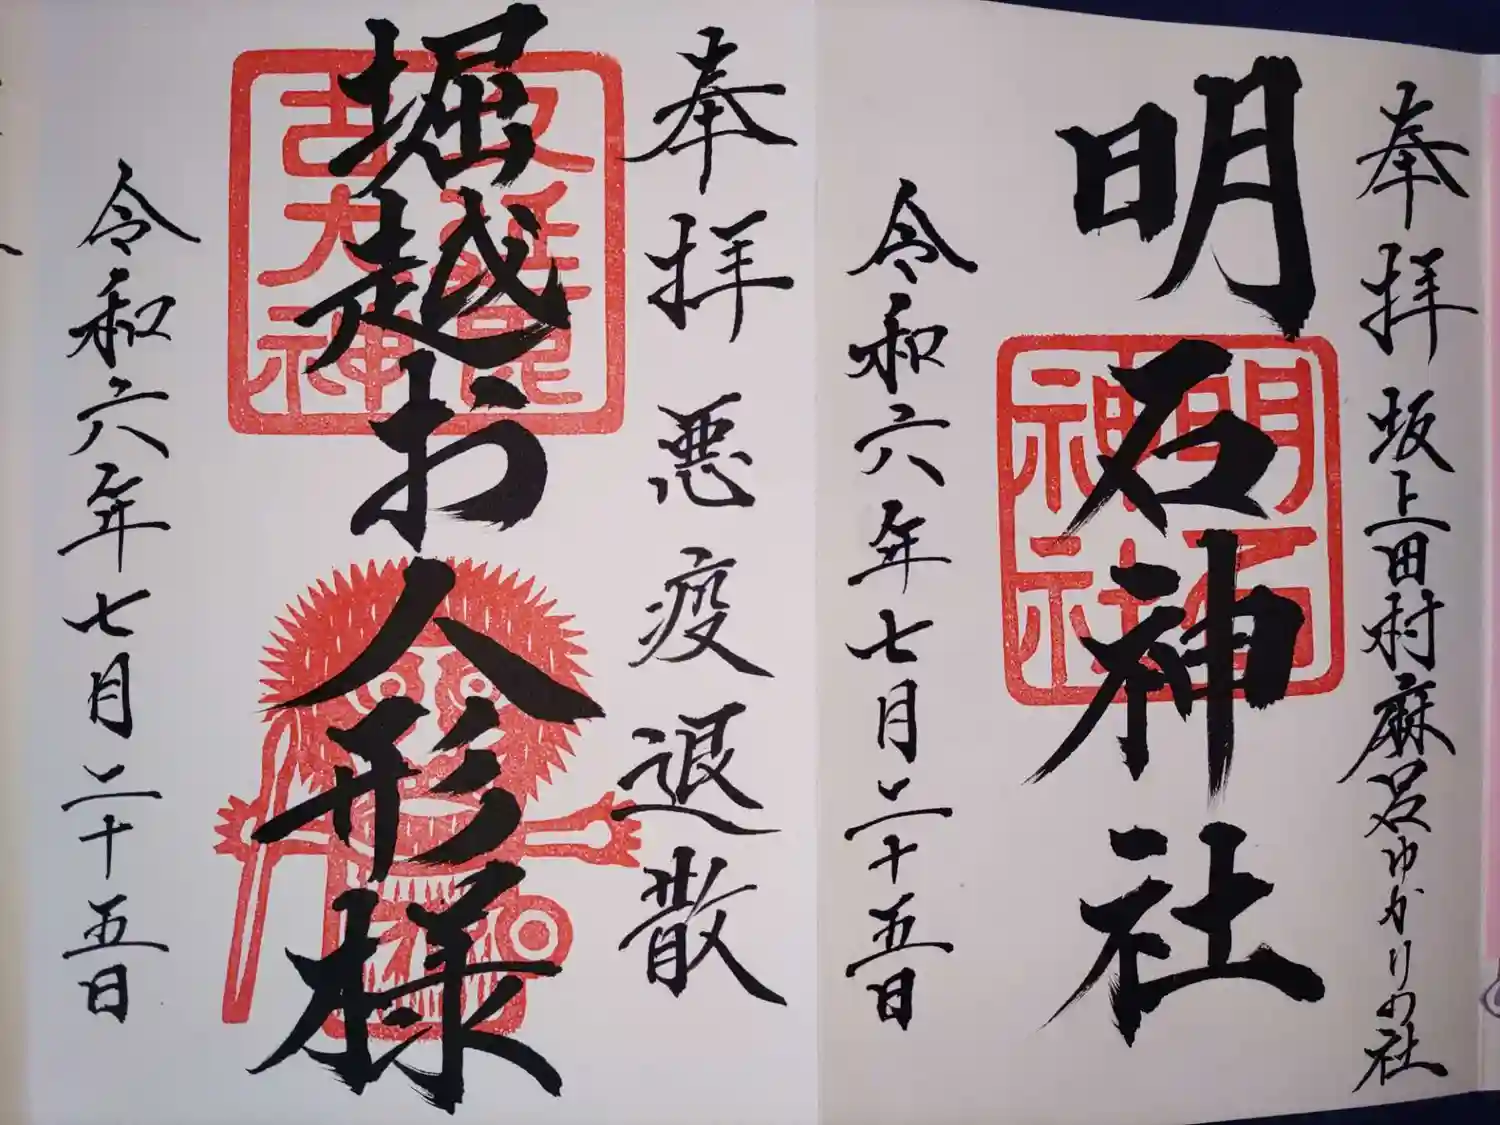 奉拝 坂上田村麻呂ゆかりの社
明石神社
明石
神社
令和六年七月二十五日
奉拝 悪疫退散
堀越お人形様
令和六年七月二十五日